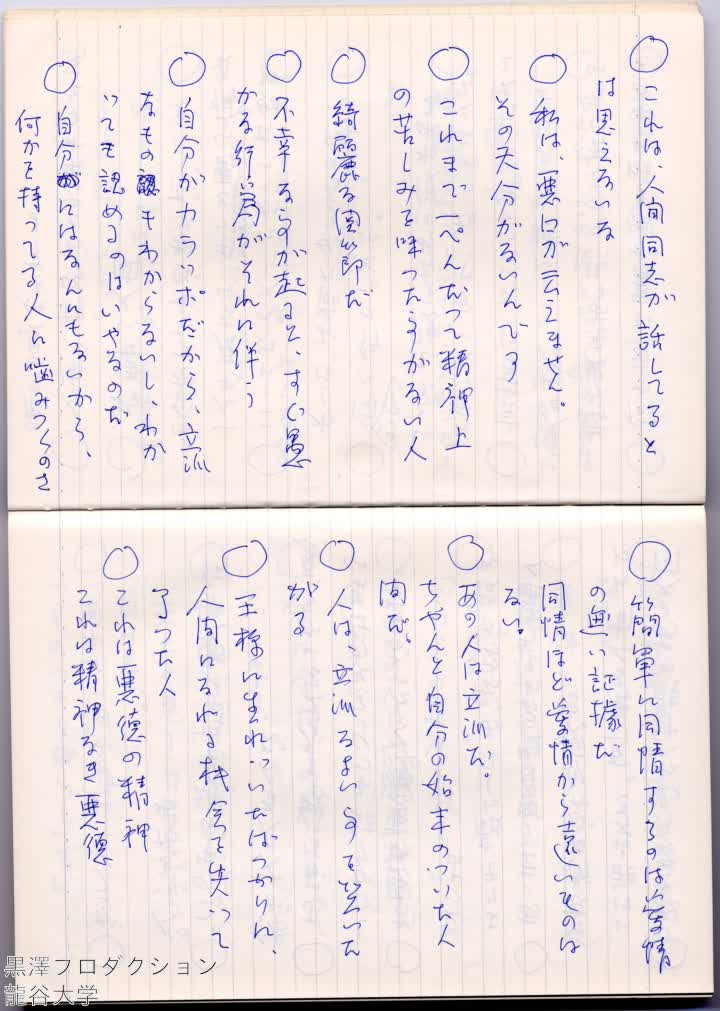 ○ これは、人間同志が話してると
は思えないな
○ 私は、悪口が云えません。
その天分がないんです
○ これまで一ぺんだって精神上
の苦しみを味ったことがない人
○ 綺麗な関節だ
○ 不幸なことが起ると、すぐ愚
かな行為がそれに伴う
○ 自分がカラッポだから、立派
なものもわからないし、わか
いても認めるのはいやなのだ
○ 自分にはなんにもないから、
何かを持ってる人に噛みつくのさ
○ 簡単に同情するのは愛情
の無い証拠だ
同情ほど愛情から遠いものは
ない。
○ あの人は立派だ。
ちゃんと自分の始末のついた人
間だ。
○ 人は、立派なよいことを笑いた
がる
○ 王様に生れついたばっかりに、
人間になれる机会を失って
了った人
○ これは悪徳の精神
これは精神なき悪徳
黒澤プロダクション
龍谷大学